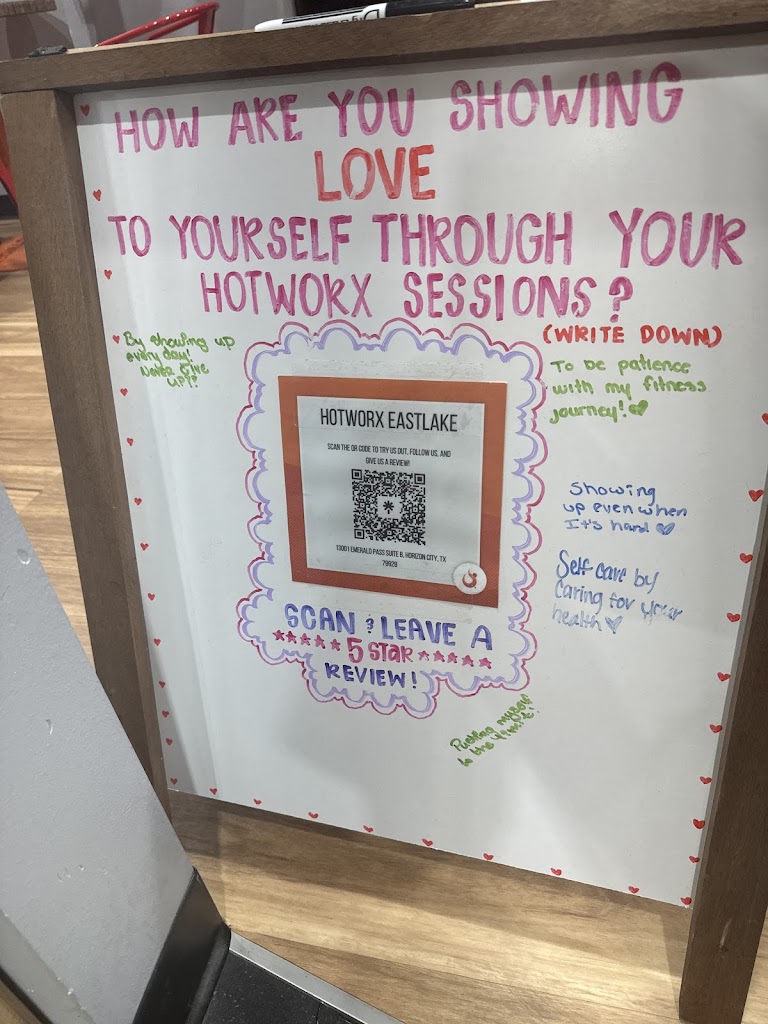 HOW ARE YOU SHOWING
LOVE
TO YOURSELF THROUGH YOUR
HOTWORX SESSIONS?
(WRITE DOWN)
By showing up
every day!
Never give
up!!
To be patience
with my fitness
journey!
HOTWORX EASTLAKE
SCAN THE QR CODE TO TRY US OUT, FOLLOW US, AND
GIVE US A REVIEW!
13001 EMERALD PASS SUITE B, HORIZON CITY, TX
79928
Showing
up even when
It's hard
Self care by
Caring for your
health
SCAN & LEAVE A
5 STAR
REVIEW!
Pushing myself
to the limit!